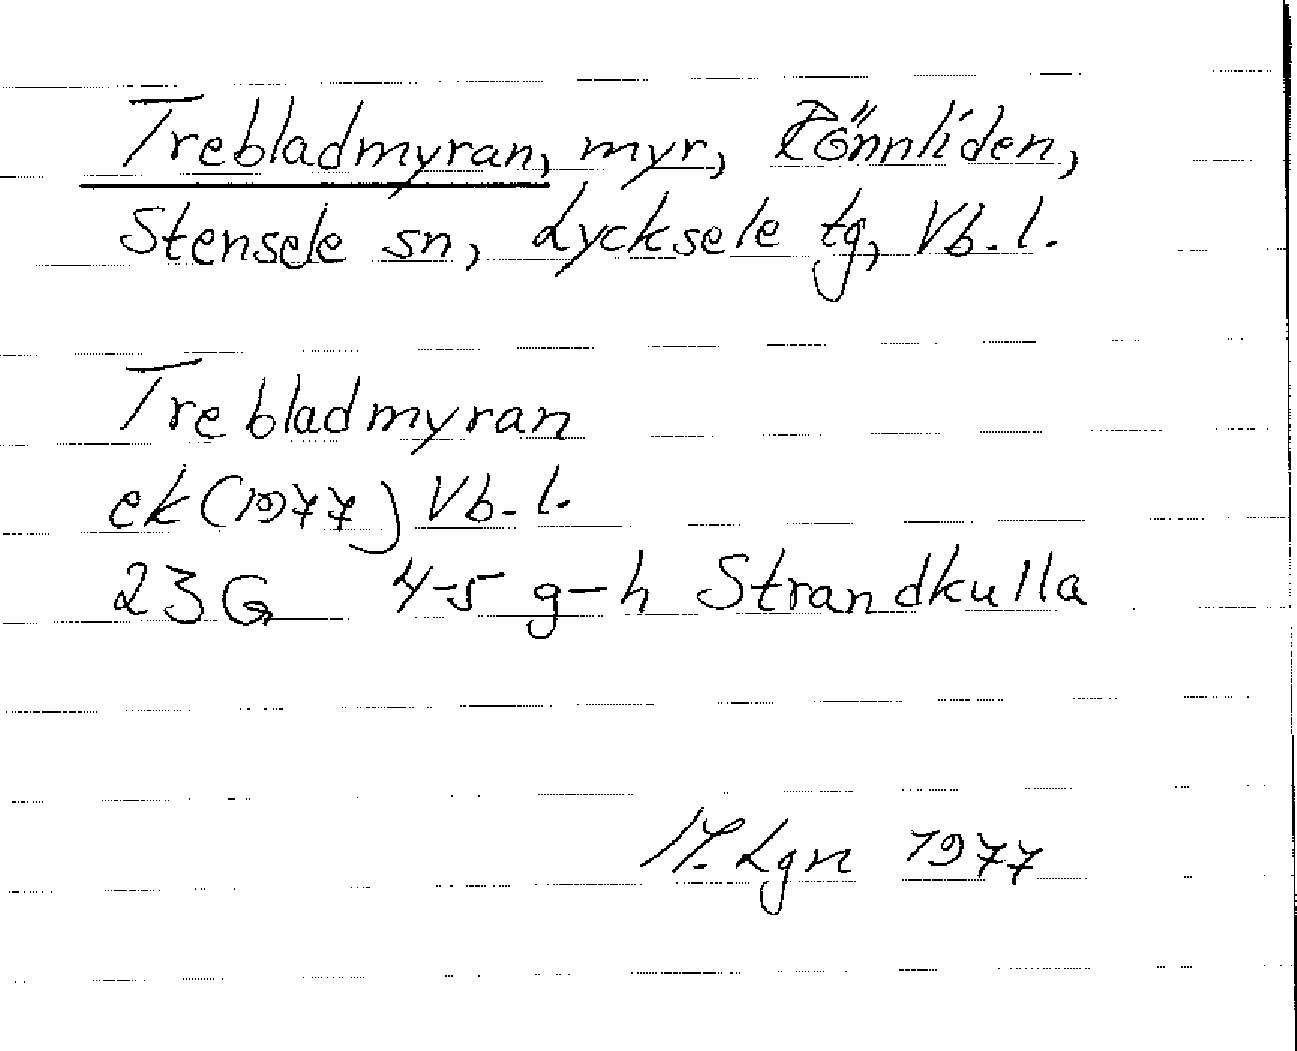 Trebladmyran, myr, Rönnliden,
Stensele sn, Lycksele tg, Vb. l.
Trebladmyran
ek (1977) Vb. l.
23 G 4-5 g-h Strandkulla
Lgn 1977